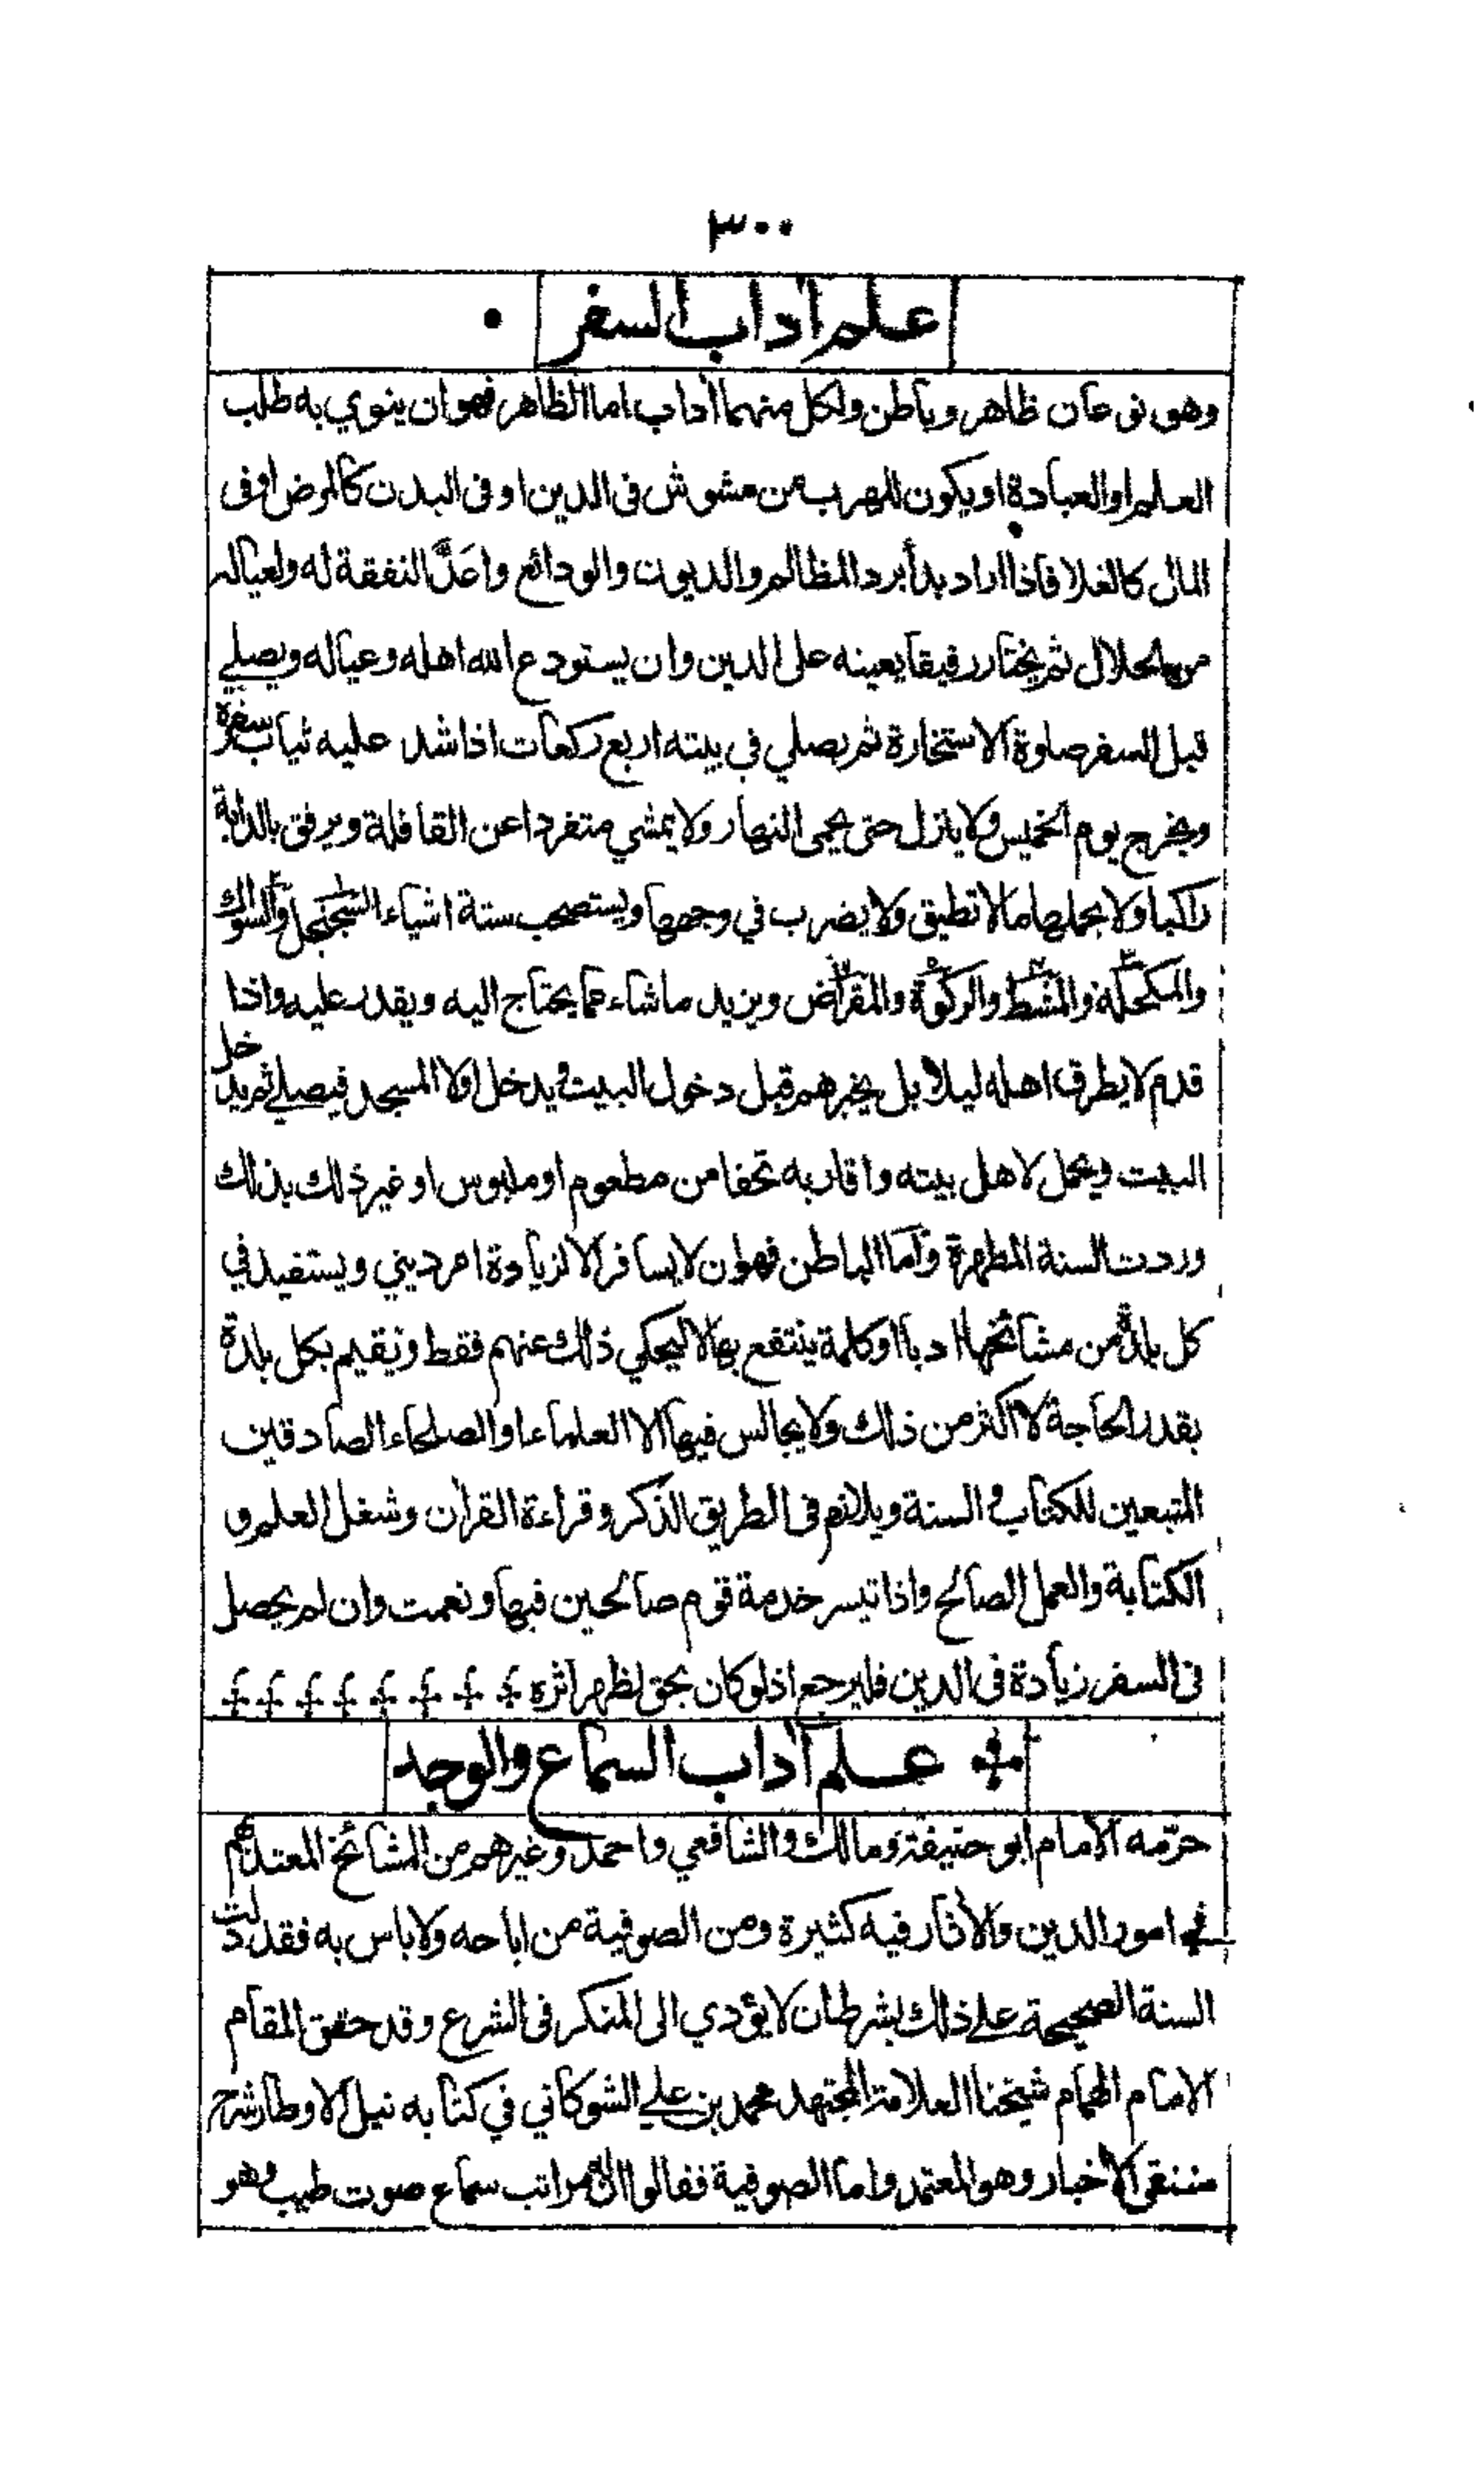 ٣٠٠
علم اداب السفر
وهو نوعان ظاهر وباطن ولكل منهما اداب اما الظاهر فهو ان ينوي به طلب
العلم او العبادة او يكون للهرب من مشوش فى الدين او فى البدن كالمرض او فى
المال كالغلا فاذا اراد بدأ برد المظالم والديون والودائع واعَدَّ النفقة له ولعياله
من الحلال ثم يختار رفيقا يعينه على الدين وان يستودع الله اهله وعياله ويصلي
قبل السفر صلوة الاستخارة ثم يصلي في بيته اربع ركعات اذا شد عليه ثياب سفره
ويخرج يوم الخميس ولا ينزل حتى يحمى النهار ولا يمشي متفردا عن القافلة ويرفق بالدابة
راكبا ولا يحملها ما لا تطيق ولا يضرب في وجهها ويستصحب ستة اشياء السجنجل والسواك
والمكحلة والمشط والركوة والمقراض ويزيد ما شاء مما يحتاج اليه ويقدر عليه واذا
قدم لا يطرق اهله ليلا بل يخبرهم قبل دخول البيت ويدخل اولا المسجد فيصلي ثم يدخل
البيت ويحمل لاهل بيته واقاربه تحفا من مطعوم او ملبوس او غير ذلك بذلك
وردت السنة المطهرة واما الباطن فهو ان لا يسافر الا لزيادة امر ديني ويستفيد في
كل بلدة من مشائخها ادبا او كلمة ينتفع بها لا ليحكي ذلك عنهم فقط ويقيم بكل بلدة
بقدر الحاجة لا اكثر من ذلك ولا يجالس فيها الا العلماء او الصلحاء الصادقين
المتبعين للكتاب والسنة ويلازم فى الطريق الذكر وقراءة القران وشغل العلم و
الكتابة والعمل الصالح واذا تيسر خدمة قوم صالحين فبها ونعمت وان لم يحصل
فى السفر زيادة فى الدين فليرجع اذ لو كان بحق لظهر اثره
علم آداب السماع والوجد
حرّمه الامام ابو حنيفة ومالك والشافعي واحمد وغيرهم من المشائخ المعتد بهم
في امور الدين والاثار فيه كثيرة ومن الصوفية من اباحه ولا باس به فقد دلت
السنة الصحيحة على ذلك بشرط ان لا يؤدي الى المنكر فى الشرع وقد حقق المقام
الامام الهمام شيخنا العلامة المجتهد محمد بن علي الشوكاني في كتابه نيل الاوطار شرح
منتقى الاخبار وهو المعتمد واما الصوفية فقالوا ان مراتب سماع صوت طيب وهو